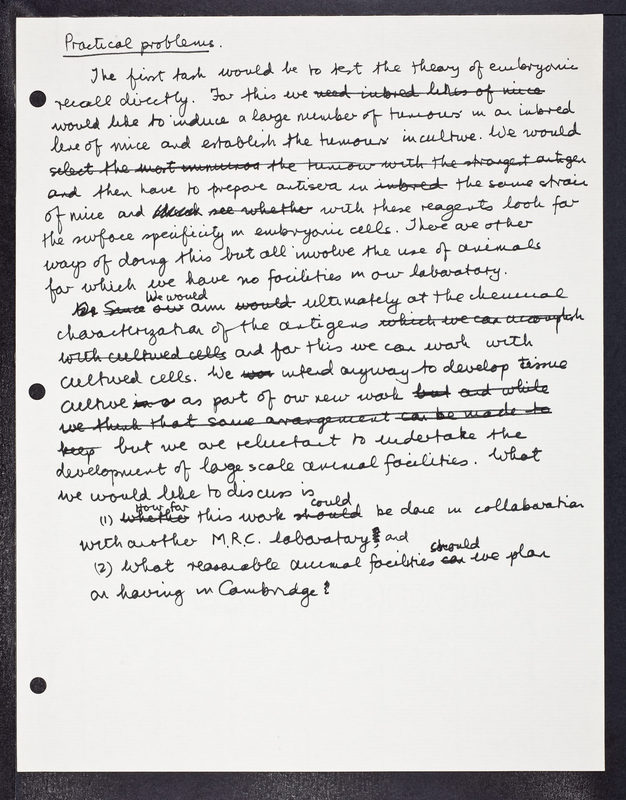 Practical problems.
The first task would be to test the theory of embryonic
recall directly. For this we need inbred lines of mice
would like to induce a large number of tumours in an inbred
line of mice and establish the tumours in culture. We would
select the most numerous the tumour with the strongest antigen
and then have to prepare antisera in inbred the same strain
of mice and see whether with these reagents look for
the surface specificity in embryonic cells. There are other
ways of doing this but all involve the use of animals
for which we have no facilities in our laboratory.
We would
Since our aim would ultimately at the chemical
characterization of the antigens which we can accomplish
with cultured cells and for this we can work with
cultured cells. We intend anyway to develop tissue
culture in a as part of our new work but and while
we think that some arrangement can be made to
keep but we are reluctant to undertake the
development of large scale animal facilities. What
we would like to discuss is
how far could
(1) whether this work should be done in collaboration
with another M.R.C. laboratory and
should
(2) what reasonable animal facilities can we plan
on having in Cambridge?